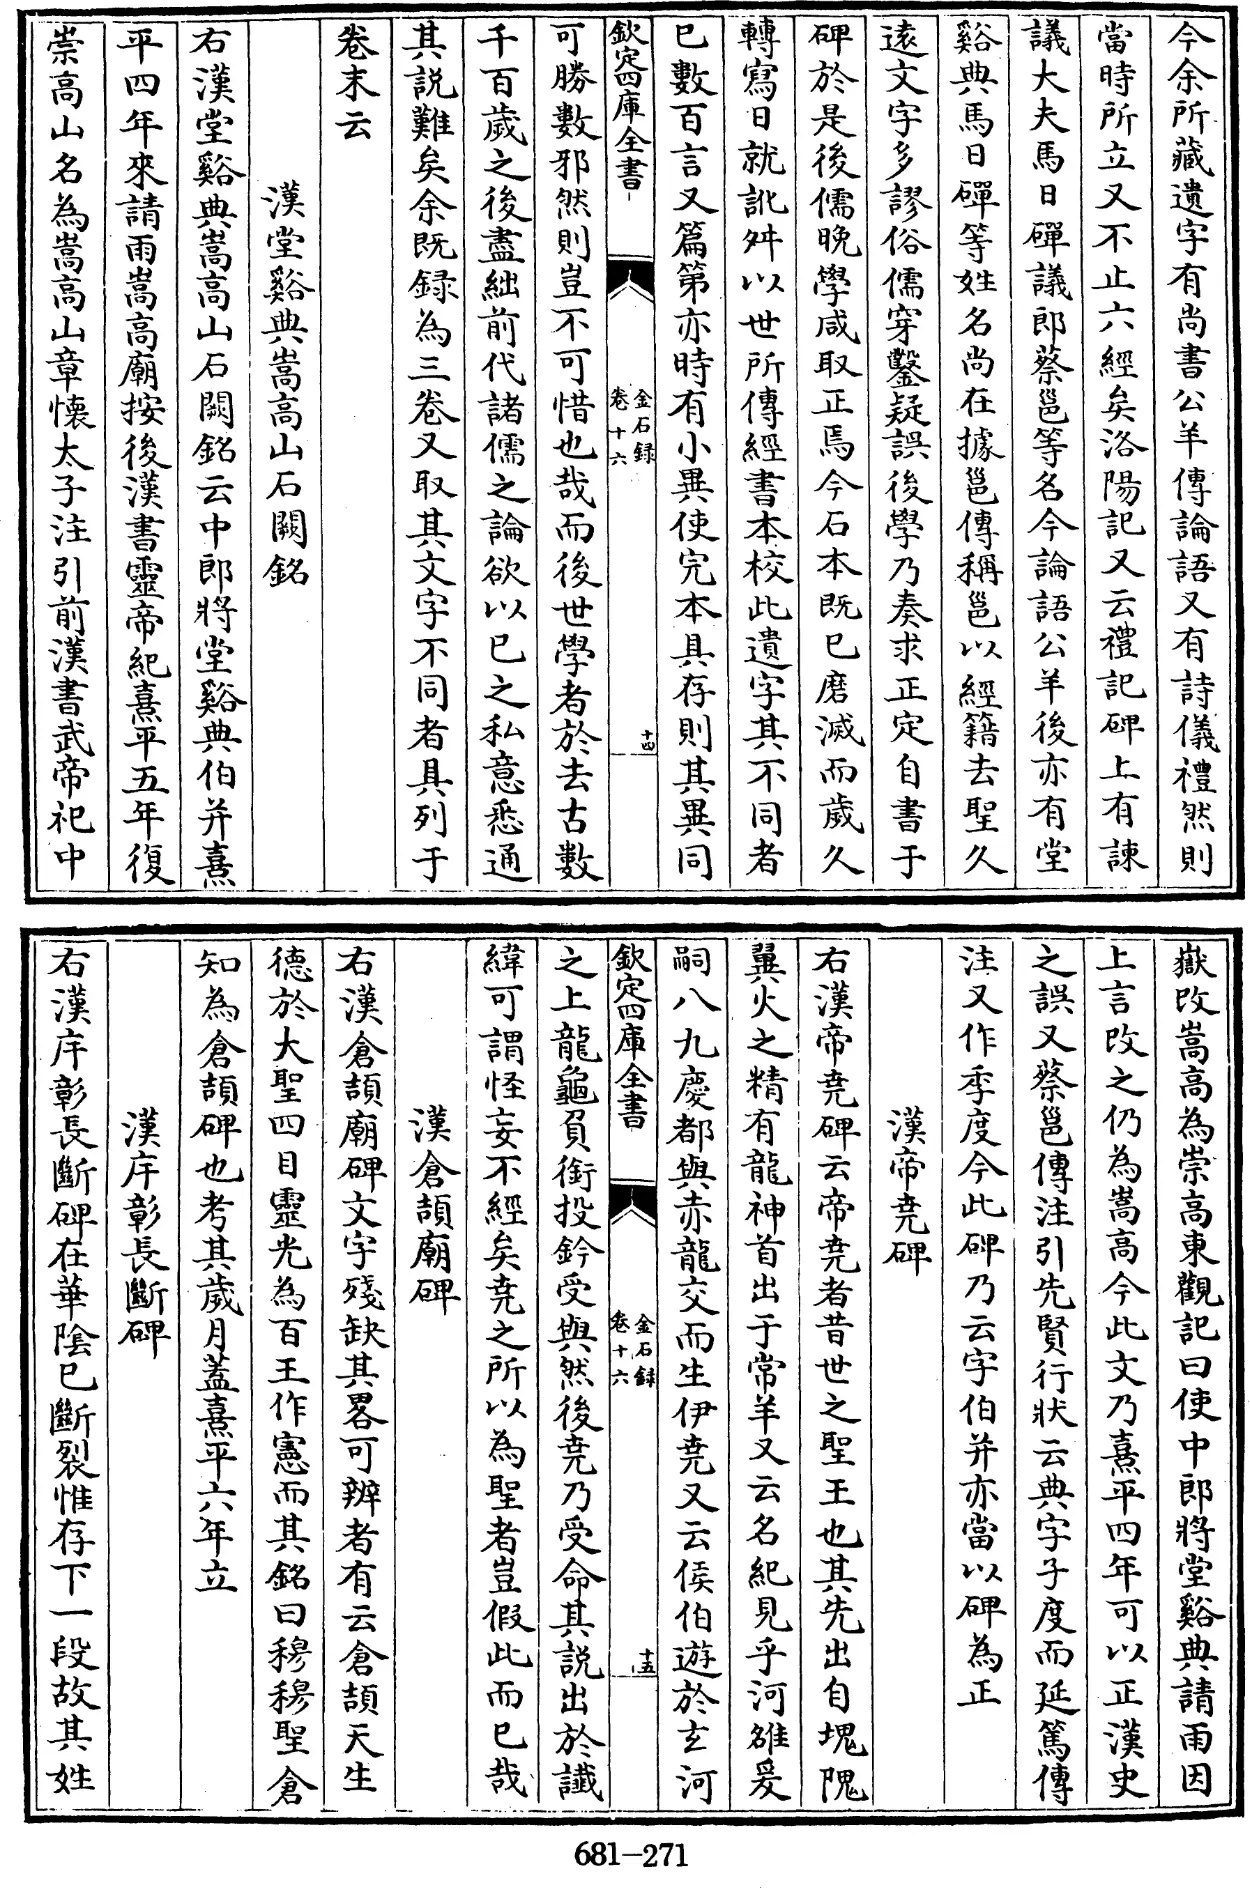 今余所藏遺字有尚書公羊傳論語又有詩儀禮然則
當時所立又不止六經矣洛陽記又云禮記碑上有諫
議大夫馬日磾議郎蔡邕等名今論語公羊後亦有堂
谿典馬日磾等姓名尚在據邕傳稱邕以經籍去聖久
遠文字多謬俗儒穿鑿疑誤後學乃奏求正定自書于
碑於是後儒晚學咸取正焉今石本既已磨滅而歲久
轉寫日就訛舛以世所傳經書本校此遺字其不同者
已數百言又篇第亦時有小異使完本具存則其異同
欽定四庫全書
金石錄
卷十六
十四
可勝數邪然則豈不可惜也哉而後世學者於去古數
千百歲之後盡絀前代諸儒之論欲以己之私意悉通
其說難矣余既錄為三卷又取其文字不同者具列于
卷末云
漢堂谿典嵩高山石闕銘
右漢堂谿典嵩高山石闕銘云中郎將堂谿典伯并熹
平四年來請雨嵩高廟按後漢書靈帝紀熹平五年復
崇高山名為嵩高山章懷太子注引前漢書武帝祀中
嶽改嵩高為崇高東觀記曰使中郎將堂谿典請雨因
上言改之仍為嵩高今此文乃熹平四年可以正漢史
之誤又蔡邕傳注引先賢行狀云典字子度而延篤傳
注又作季度今此碑乃云字伯并亦當以碑為正
漢帝堯碑
右漢帝堯碑云帝堯者昔世之聖王也其先出自塊隗
翼火之精有龍神首出于常羊又云名紀見乎河雒爰
嗣八九慶都與赤龍交而生伊堯又云侯伯遊於玄河
欽定四庫全書
金石錄
卷十六
十五
之上龍龜負銜投鈐受與然後堯乃受命其說出於讖
緯可謂怪妄不經矣堯之所以為聖者豈假此而已哉
漢倉頡廟碑
右漢倉頡廟碑文字殘缺其畧可辨者有云倉頡天生
德於大聖四目靈光為百王作憲而其銘曰穆穆聖倉
知為倉頡碑也考其歲月蓋熹平六年立
漢庠彰長斷碑
右漢庠彰長斷碑在華陰已斷裂惟存下一段故其姓
681-271